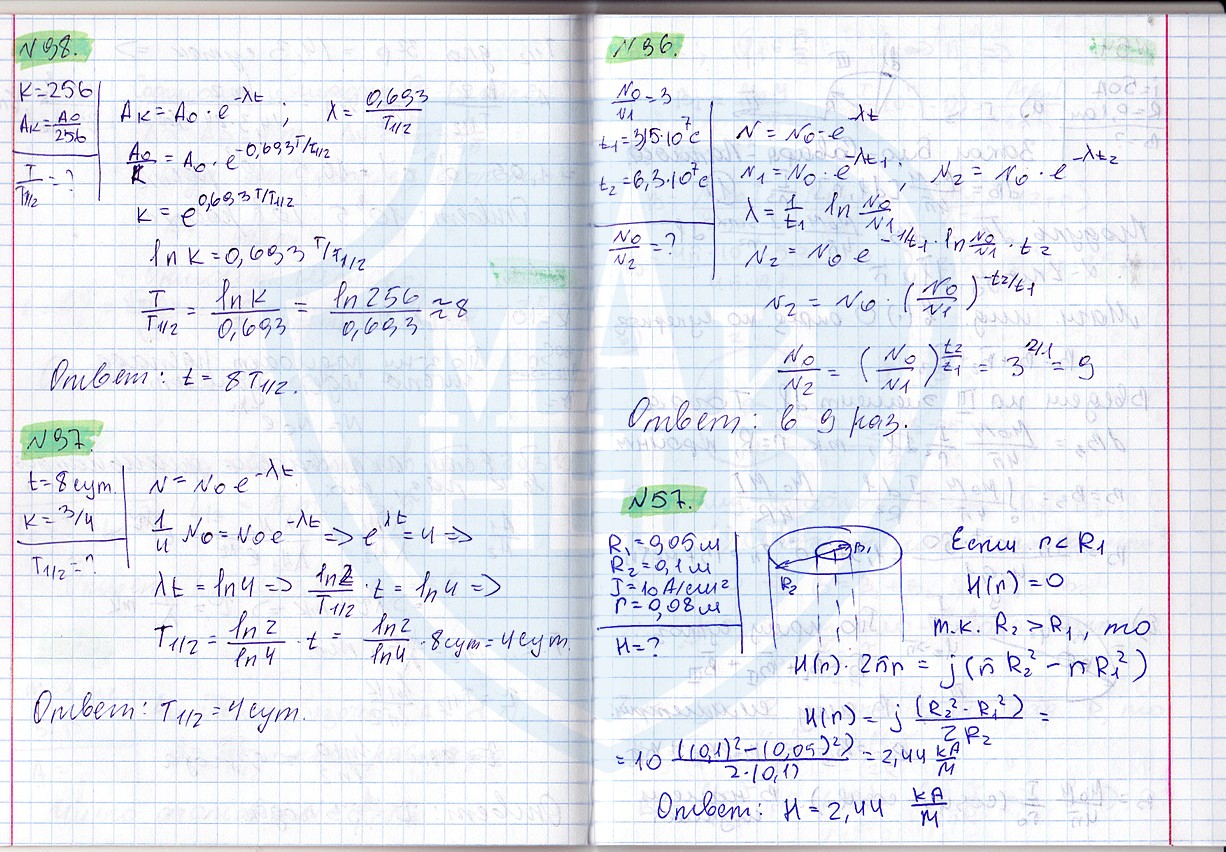 N98.
K=256
Aк = A0/256
T/T1/2 = ?
Aк = A0 · e^-λt ; λ = 0,693/T1/2
A0/K = A0 · e^-0,693T/T1/2
K = e^0,693T/T1/2
ln K = 0,693 T/T1/2
T/T1/2 = ln K/0,693 = ln 256/0,693 ≈ 8
Ответ: t = 8T1/2.
N97.
t=8сут.
K=3/4
T1/2=?
N = N0 e^-λt
1/4 N0 = N0 e^-λt => e^λt = 4 =>
λt = ln4 => ln2/T1/2 · t = ln4 =>
T1/2 = ln2/ln4 · t = ln2/ln4 · 8сут = 4сут.
Ответ: T1/2 = 4сут.
N96.
N0/N1 = 3
t1 = 3,15·10^7 с
t2 = 6,3·10^7 с
N0/N2 = ?
N = N0 · e^-λt
N1 = N0 · e^-λt1 ; N2 = N0 · e^-λt2
λ = 1/t1 ln N0/N1
N2 = N0 e^-1/t1 · ln N0/N1 · t2
N2 = N0 · (N0/N1)^-t2/t1
N0/N2 = (N0/N1)^t2/t1 = 3^2/1 = 9
Ответ: в 9 раз.
N57.
R1 = 0,05 м
R2 = 0,1 м
J = 10 А/см²
r = 0,08 м
H = ?
R1
R2
Если r < R1
H(r) = 0
т.к. R2 > R1, то
H(r) · 2πr = j(πR2² - πR1²)
H(r) = j (R2² - R1²)/2R2 =
= 10 ((0,1)² - (0,05)²)/2·(0,1) = 2,44 кА/м
Ответ: H = 2,44 кА/м